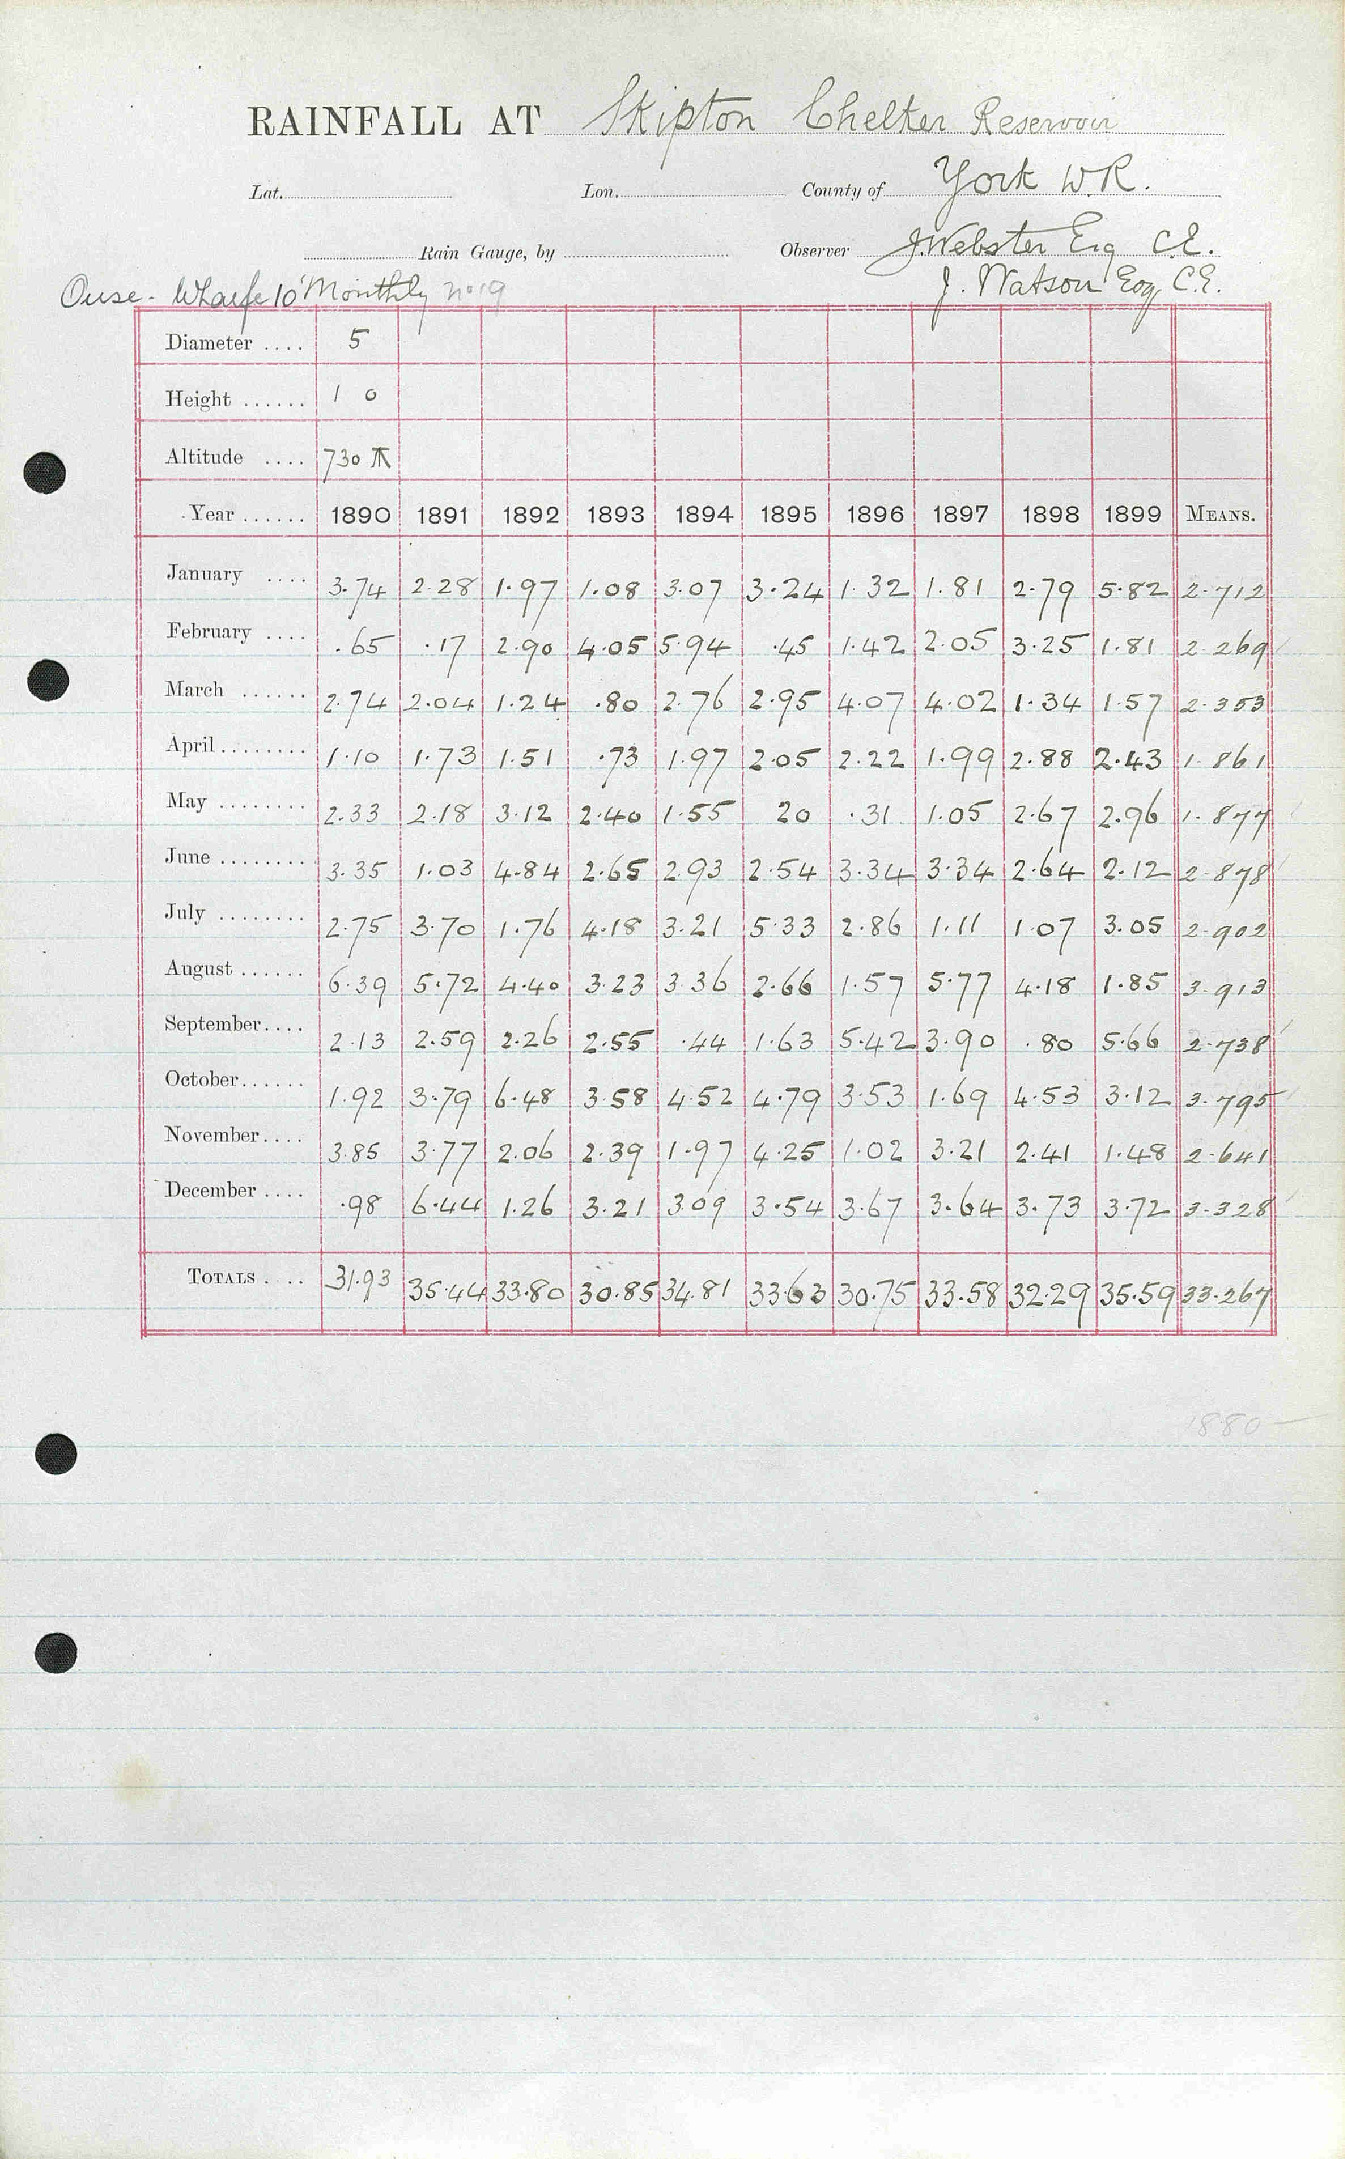 RAINFALL AT Skipton Chelker Reservoir
Lat. Lon. County of York W.R.
Rain Gauge, by Observer J. Webster Esq C.E.
Ouse - Wharfe 10' Monthly No 19 J. Watson Esq C.E.
Diameter .... 5
Height ...... 1 0
Altitude .... 730
Year ...... 1890 1891 1892 1893 1894 1895 1896 1897 1898 1899 MEANS.
January .... 3.74 2.28 1.97 1.08 3.07 3.24 1.32 1.81 2.79 5.82 2.712
February .... .65 .17 2.90 4.05 5.94 .45 1.42 2.05 3.25 1.81 2.269
March ...... 2.74 2.04 1.24 .80 2.76 2.95 4.07 4.02 1.34 1.57 2.353
April ........ 1.10 1.73 1.51 .73 1.97 2.05 2.22 1.99 2.88 2.43 1.861
May ........ 2.33 2.18 3.12 2.40 1.55 20 .31 1.05 2.67 2.96 1.877
June ......... 3.35 1.03 4.84 2.65 2.93 2.54 3.34 3.34 2.64 2.12 2.878
July ........ 2.75 3.70 1.76 4.18 3.21 5.33 2.86 1.11 1.07 3.05 2.902
August ...... 6.39 5.72 4.40 3.23 3.36 2.66 1.57 5.77 4.18 1.85 3.913
September.... 2.13 2.59 2.26 2.55 .44 1.63 5.42 3.90 .80 5.66 2.738
October...... 1.92 3.79 6.48 3.58 4.52 4.79 3.53 1.69 4.53 3.12 3.795
November.... 3.85 3.77 2.06 2.39 1.97 4.25 1.02 3.21 2.41 1.48 2.641
December .... .98 6.44 1.26 3.21 3.09 3.54 3.67 3.64 3.73 3.72 3.328
TOTALS .... 31.93 35.44 33.80 30.85 34.81 33.63 30.75 33.58 32.29 35.59 33.267
1880 -